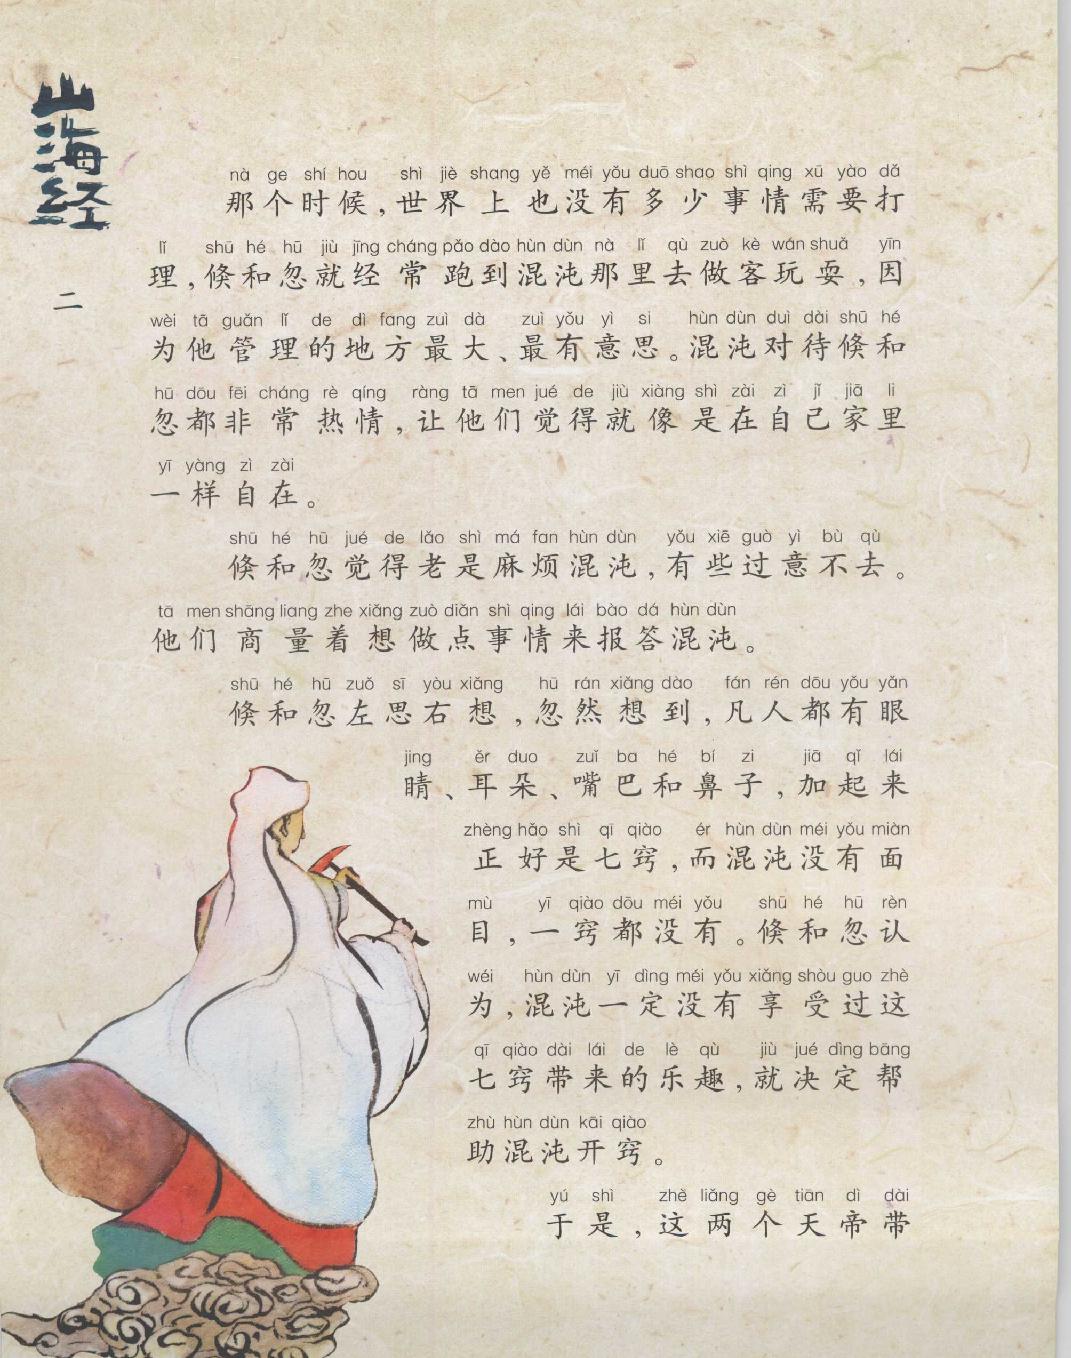 山海经
二
nà ge shí hou shì jiè shang yě méi yǒu duō shao shì qing xū yào dǎ
那个时候，世界上也没有多少事情需要打
lǐ shū hé hū jiù jīng cháng pǎo dào hùn dùn nà lǐ qù zuò kè wán shuǎ yīn
理，倏和忽就经常跑到混沌那里去做客玩耍，因
wèi tā guǎn lǐ de dì fang zuì dà zuì yǒu yì si hùn dùn duì dài shū hé
为他管理的地方最大、最有意思。混沌对待倏和
hū dōu fēi cháng rè qíng ràng tā men jué de jiù xiàng shì zài zì jǐ jiā li
忽都非常热情，让他们觉得就像是在自己家里
yī yàng zì zài
一样自在。
shū hé hū jué de lǎo shì má fan hùn dùn yǒu xiē guò yì bù qù
倏和忽觉得老是麻烦混沌，有些过意不去。
tā men shāng liang zhe xiǎng zuò diǎn shì qing lái bào dá hùn dùn
他们商量着想做点事情来报答混沌。
shū hé hū zuǒ sī yòu xiǎng hū rán xiǎng dào fán rén dōu yǒu yǎn
倏和忽左思右想，忽然想到，凡人都有眼
jing ěr duo zuǐ ba hé bí zi jiā qǐ lái
睛、耳朵、嘴巴和鼻子，加起来
zhèng hǎo shì qī qiào ér hùn dùn méi yǒu miàn
正好是七窍，而混沌没有面
mù yī qiào dōu méi yǒu shū hé hū rèn
目，一窍都没有。倏和忽认
wéi hùn dùn yī dìng méi yǒu xiǎng shòu guo zhè
为，混沌一定没有享受过这
qī qiào dài lái de lè qù jiù jué dìng bāng
七窍带来的乐趣，就决定帮
zhù hùn dùn kāi qiào
助混沌开窍。
yú shì zhè liǎng gè tiān dì dài
于是，这两个天帝带